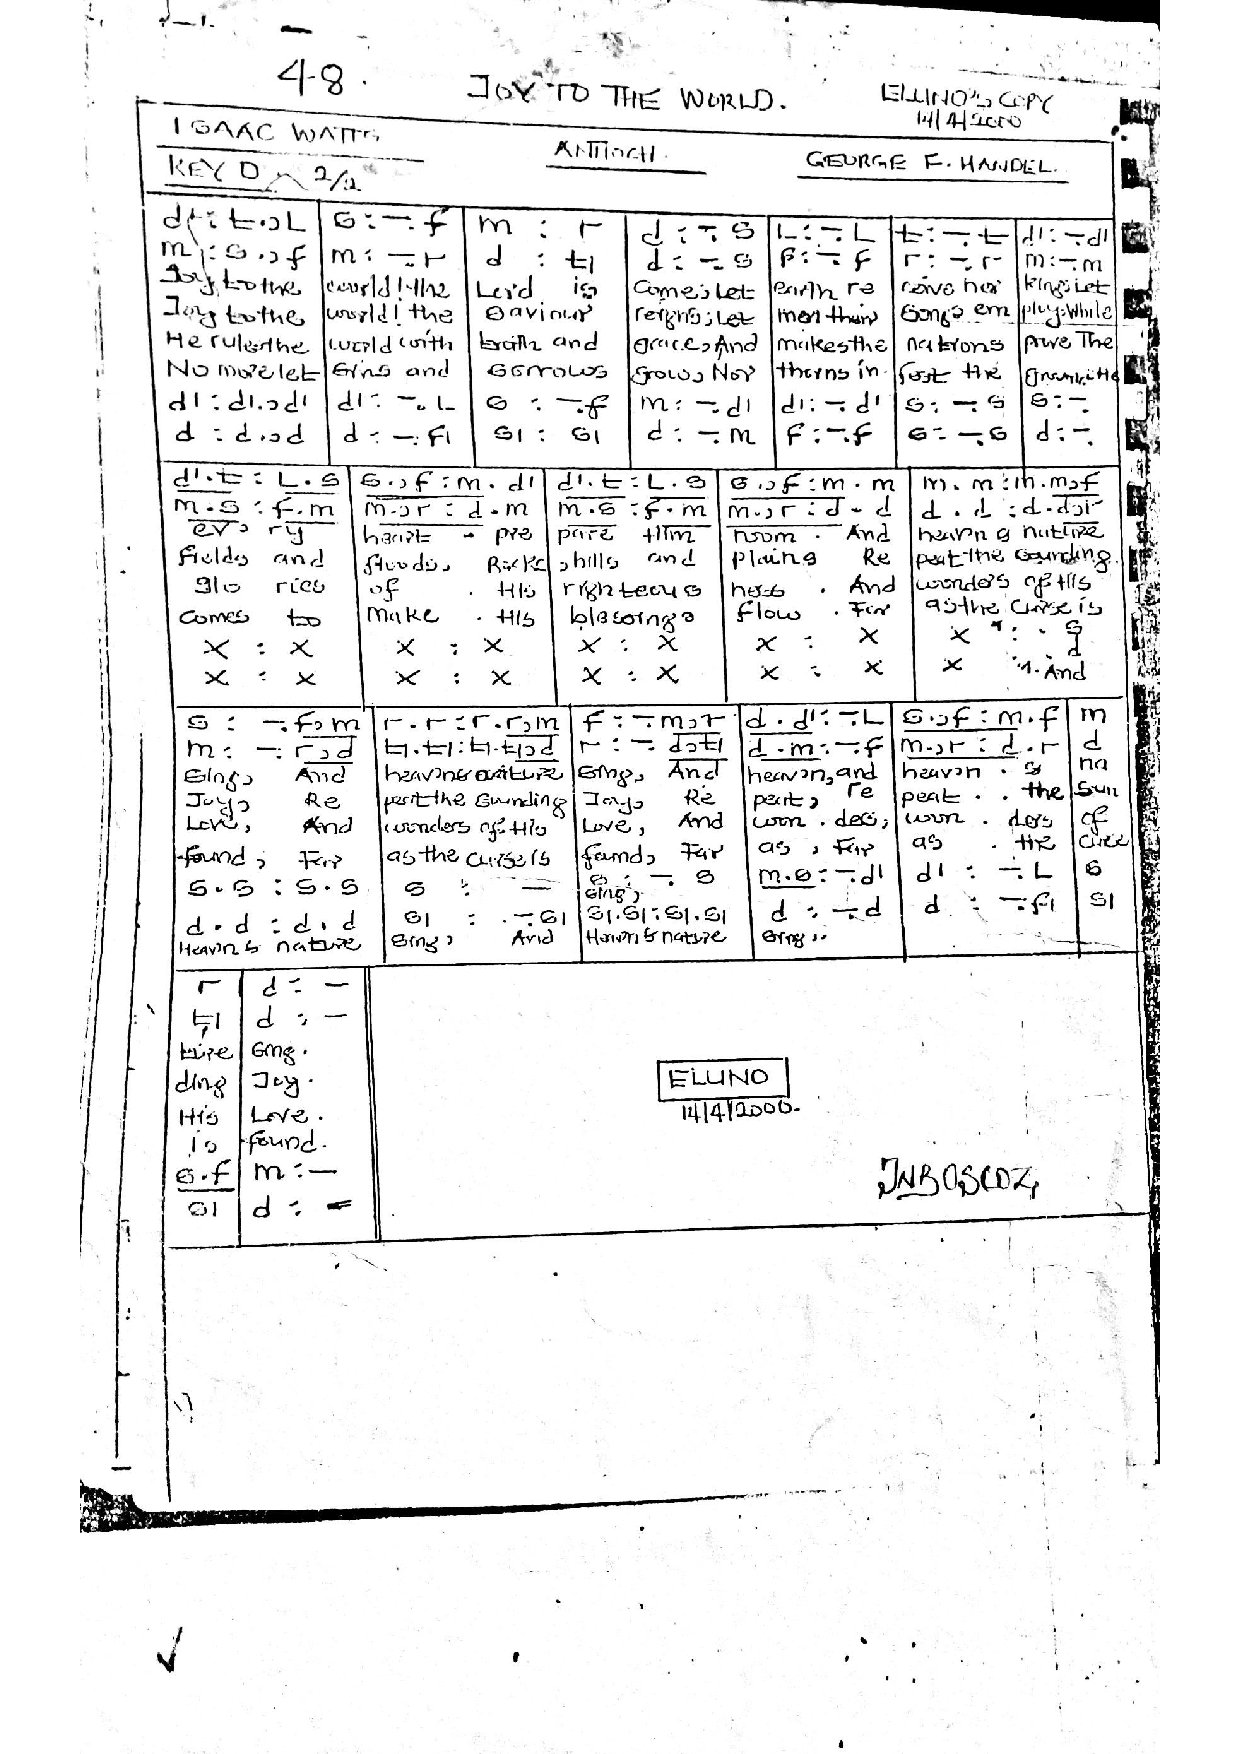 48.
JOY TO THE WORLD.
ELLINO'S COPY
14/4/2000
ISAAC WATTS
ANTIOCH.
GEORGE F. HANDEL.
KEY D 2/2
d| : t.,L | s : -.f | m : r | d : -. s | L : -. L | t : -. t | d| : -. d|
m : s.,f | m : -. r | d : t| | d : -. s | f : -. f | r : -. r | m : -. m
Joy to the | world! the | Lord is | come; Let | earth re | ceive her | king; Let
Joy to the | world! the | Saviour | reigns; Let | men their | songs em | ploy. While
He rules the | world with | truth and | grace, And | makes the | nations | prove The
No more let | sins and | sorrows | grow, Nor | thorns in | fest the
d| : d|.,d| | d| : -. L | s : -. f | m : -. d| | d| : -. d| | s : -. s | s : -.
d : d.,d | d : -. f| | s| : s| | d : -. m | f : -. f | s : -. s | d : -.
d|.t : L.s | s.,f : m. d| | d|.t : L.s | s.,f : m. m | m. m : m. m,f
m.s : f.m | m.,r : d.m | m.s : f.m | m.,r : d. d | d. d : d. d,r
eve ry | heart - pre | pare Him | room . And | heaven & nature
fields and | floods, Rocks | , hills and | plains Re | peat the sounding
glo ries | of . His | righteous | ness . And | wonders of His
comes to | make . His | blessings | flow . Far | as the curse is
X : X | X : X | X : X | X : X | X : . s
d
X : X | X : X | X : X | X : X | X . And
s : -. f,m | r. r : r. r,m | f : -. m,r | d. d| : -. L | s.,f : m. f | m
m : -. r,d | t|. t| : t|. t|,d | r : -. d,t| | d. m : -. f | m.,r : d. r | d
Sing, And | heaven & nature | Sing, And | heaven, and | heaven . & | na
Joy, Re | peat the sounding | Joy, Re | peat, re | peat . . the | Sun
Love, And | wonders of His | Love, And | won . ders, | won . ders | of
found, Far | as the curse is | found, Far | as , Far | as . the | curse
s. s : s. s | s : - | s : -. s | m. s : -. d| | d| : -. L | s
Sing,
d. d : d. d | s| : -. s| | s|. s| : s|. s| | d : -. d | d : -. f| | s|
Heaven & nature | Sing, And | Heaven & nature | Sing,.
r | d : -
t| | d : -
ture | Sing.
ding | Joy.
His | Love.
is | found.
s.f | m : -
s| | d : -
ELLINO
14/4/2000.